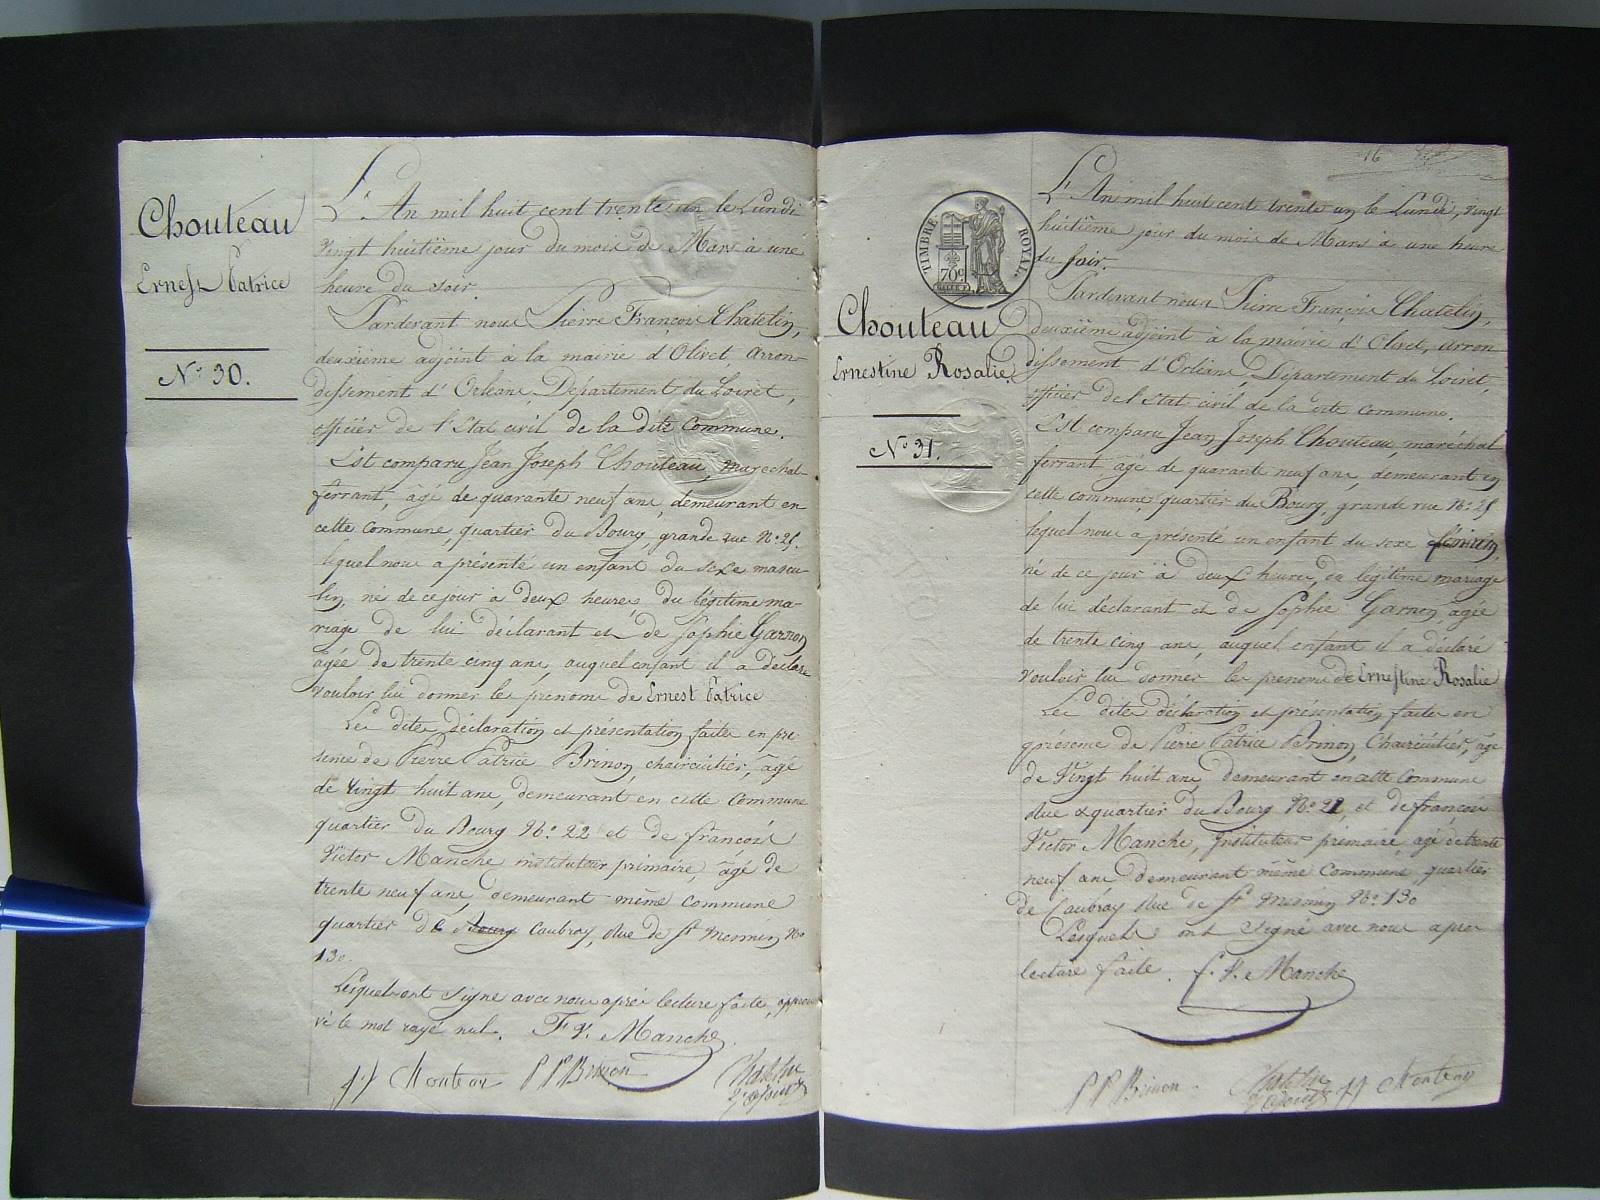 Chouteau
Ernest Patrice
N.º 30.
L'An mil huit cent trente un le Lundi
vingt huitième jour du mois de Mars à une
heure du soir.
Pardevant nous Pierre François Chatelin,
deuxième adjoint à la mairie d'Olivet, arron-
dissement d'Orléans, Département du Loiret,
officier de l'Etat civil de la dite Commune.
Est comparu Jean Joseph Chouteau, marechal
ferrant, âgé de quarante neuf ans, demeurant en
cette Commune, quartier du Bourg, grande rue Nº 25.
lequel nous a présenté un enfant du sexe mascu-
lin, né de ce jour à deux heures du légitime ma-
riage de lui déclarant et de Sophie Garnon
âgée de trente cinq ans, auquel enfant il a déclaré
vouloir lui donner les prénoms de Ernest Patrice
Les dites déclaration et présentation faites en pré-
sence de Pierre Patrice Brinon, chaircuitier, âgé
de vingt huit ans, demeurant en cette Commune
quartier du Bourg Nº 22 et de François
Victor Manche instituteur primaire, âgé de
trente neuf ans, demeurant même commune
quartier de Bourg Caubray, rue de St Mesmin Nº
130.
Lesquels ont signé avec nous après lecture faite, approu
vé le mot rayé nul. F. V. Manche
J. J. Chouteau P P Brinon Chatelin
2e adjoint
16
TIMBRE ROYAL
70c
Chouteau
Ernestine Rosalie
Nº 31.
L'An mil huit cent trente un le Lundi, vingt
huitième jour du mois de Mars à une heure
du soir.
Pardevant nous Pierre François Chatelin,
deuxième adjoint à la mairie d'Olivet, arron
dissement d'Orléans, Département du Loiret,
officier de l'Etat civil de la dite Commune.
Est comparu Jean Joseph Chouteau, maréchal
ferrant, âgé de quarante neuf ans, demeurant en
cette commune, quartier du Bourg, grande rue Nº 25
lequel nous a présenté un enfant du sexe féminin,
né de ce jour à deux heures, du légitime mariage
de lui déclarant et de Sophie Garnon, âgée
de trente cinq ans, auquel enfant il a déclaré
vouloir lui donner les prénoms de Ernestine Rosalie
Les dites déclaration et présentation faites en
présence de Pierre Patrice Brinon, Chaircuitier, âgé
de Vingt huit ans, demeurant en cette Commune
rue & quartier du Bourg Nº 22, et de François
Victor Manche, Instituteur primaire, âgé de trente
neuf ans demeurant même Commune, quartier
de Caubray rue de St Mesmin Nº 130
Lesquels ont signé avec nous après
lecture faite. F. V. Manche
P P Brinon Chatelin J J Chouteau
2e adjoint